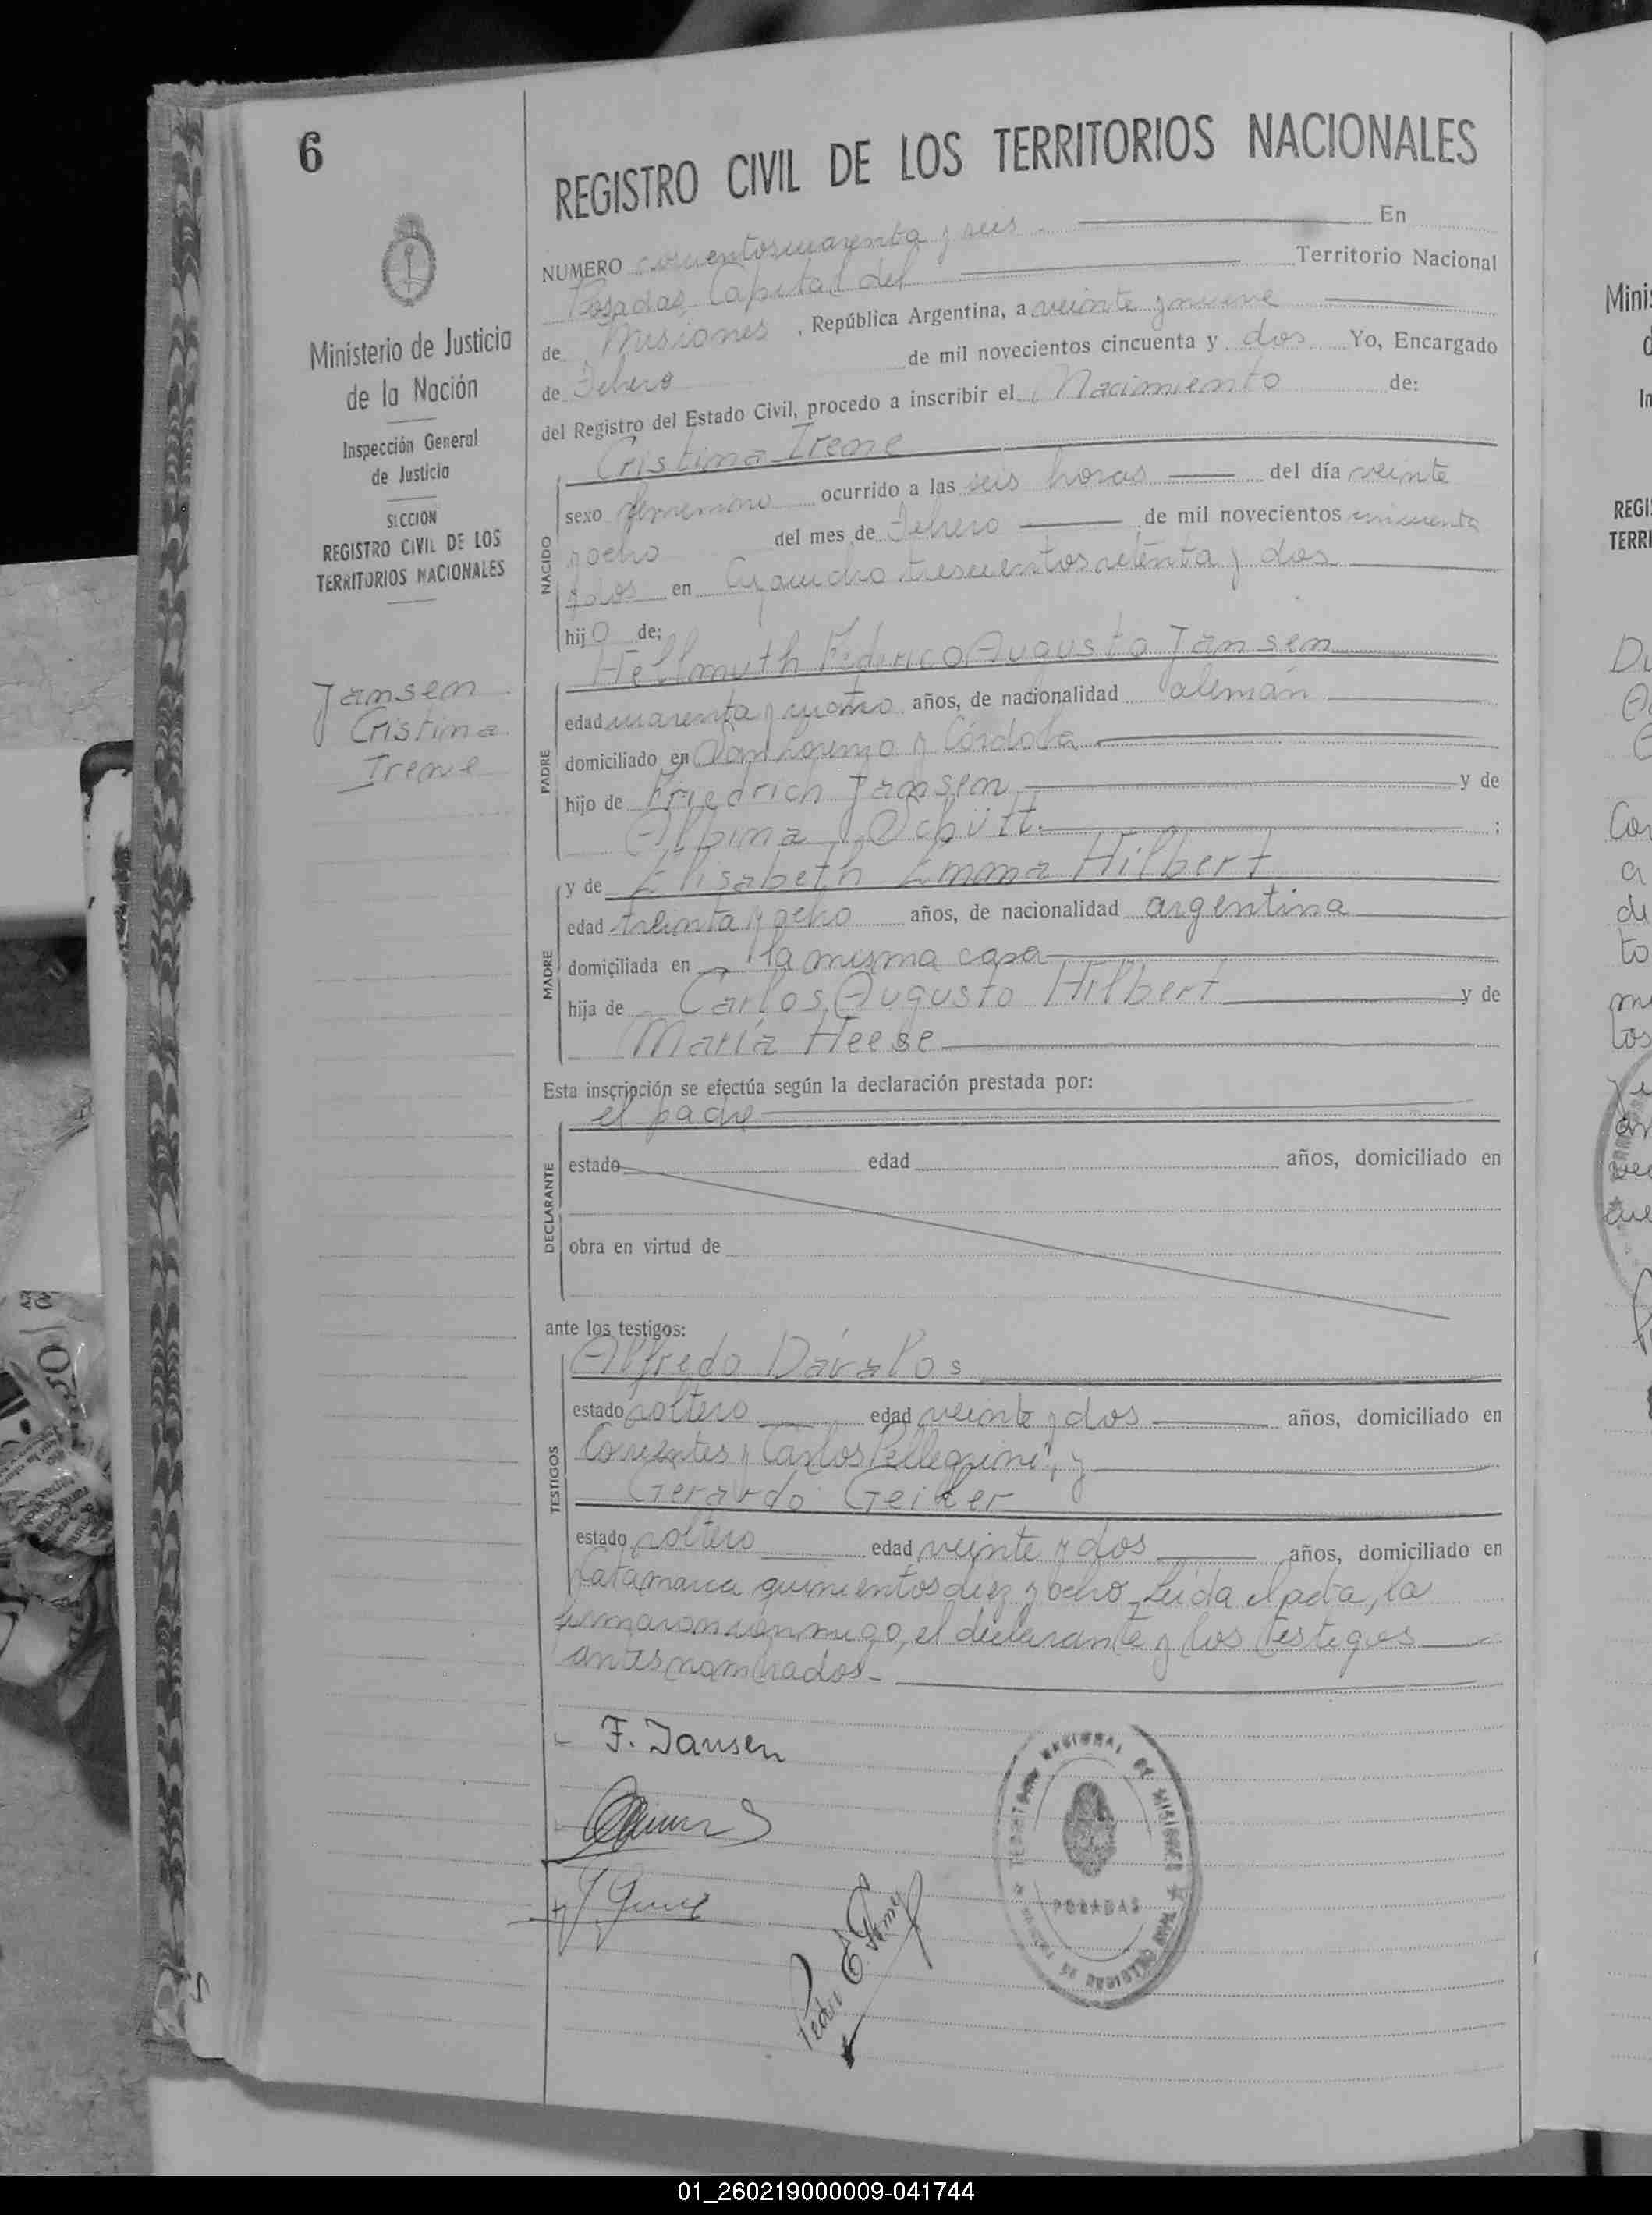 6
REGISTRO CIVIL DE LOS TERRITORIOS NACIONALES
Ministerio de Justicia
de la Nación
Inspección General
de Justicia
SECCION
REGISTRO CIVIL DE LOS
TERRITORIOS NACIONALES
Jansen
Cristina
Irene
NUMERO cuarenta y seis En
Posadas Capital del Territorio Nacional
de Misiones, República Argentina, a veinte y nueve
de Febrero de mil novecientos cincuenta y dos Yo, Encargado
del Registro del Estado Civil, procedo a inscribir el Nacimiento de:
Cristina Irene
NACIDO
sexo femenino ocurrido a las seis horas del día veinte
y ocho del mes de Febrero de mil novecientos cincuenta
y dos en Ayacucho trescientos setenta y dos
hijo de:
Hellmuth Federico Augusto Jansen
PADRE
edad cuarenta y cuatro años, de nacionalidad alemán
domiciliado en San Lorenzo y Córdoba
hijo de Friedrich Jansen y de
Albina Schütt. :
y de Elisabeth Emma Hilbert
MADRE
edad treinta y ocho años, de nacionalidad argentina
domiciliada en la misma casa
hija de Carlos Augusto Hilbert y de
María Heese
Esta inscripción se efectúa según la declaración prestada por:
el padre
DECLARANTE
estado edad años, domiciliado en
obra en virtud de
ante los testigos:
Alfredo Dávalos
TESTIGOS
estado soltero edad veinte y dos años, domiciliado en
Corrientes y Carlos Pellegrini, y
Gerardo
estado soltero edad veinte y dos años, domiciliado en
Catamarca quinientos diez y ocho. Leída el acta, la
firmaron conmigo, el declarante y los testigos
antes nombrados.
F. Jansen
TERRITORIO NACIONAL DE MISIONES
POSADAS
01_260219000009-041744